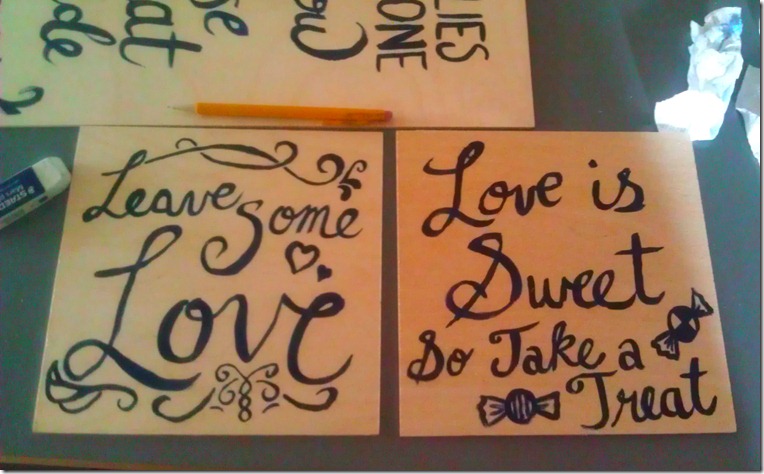 LIES
ONE
STAED
Mars
Leave
Some
Love
Love is
Sweet
So Take a
Treat